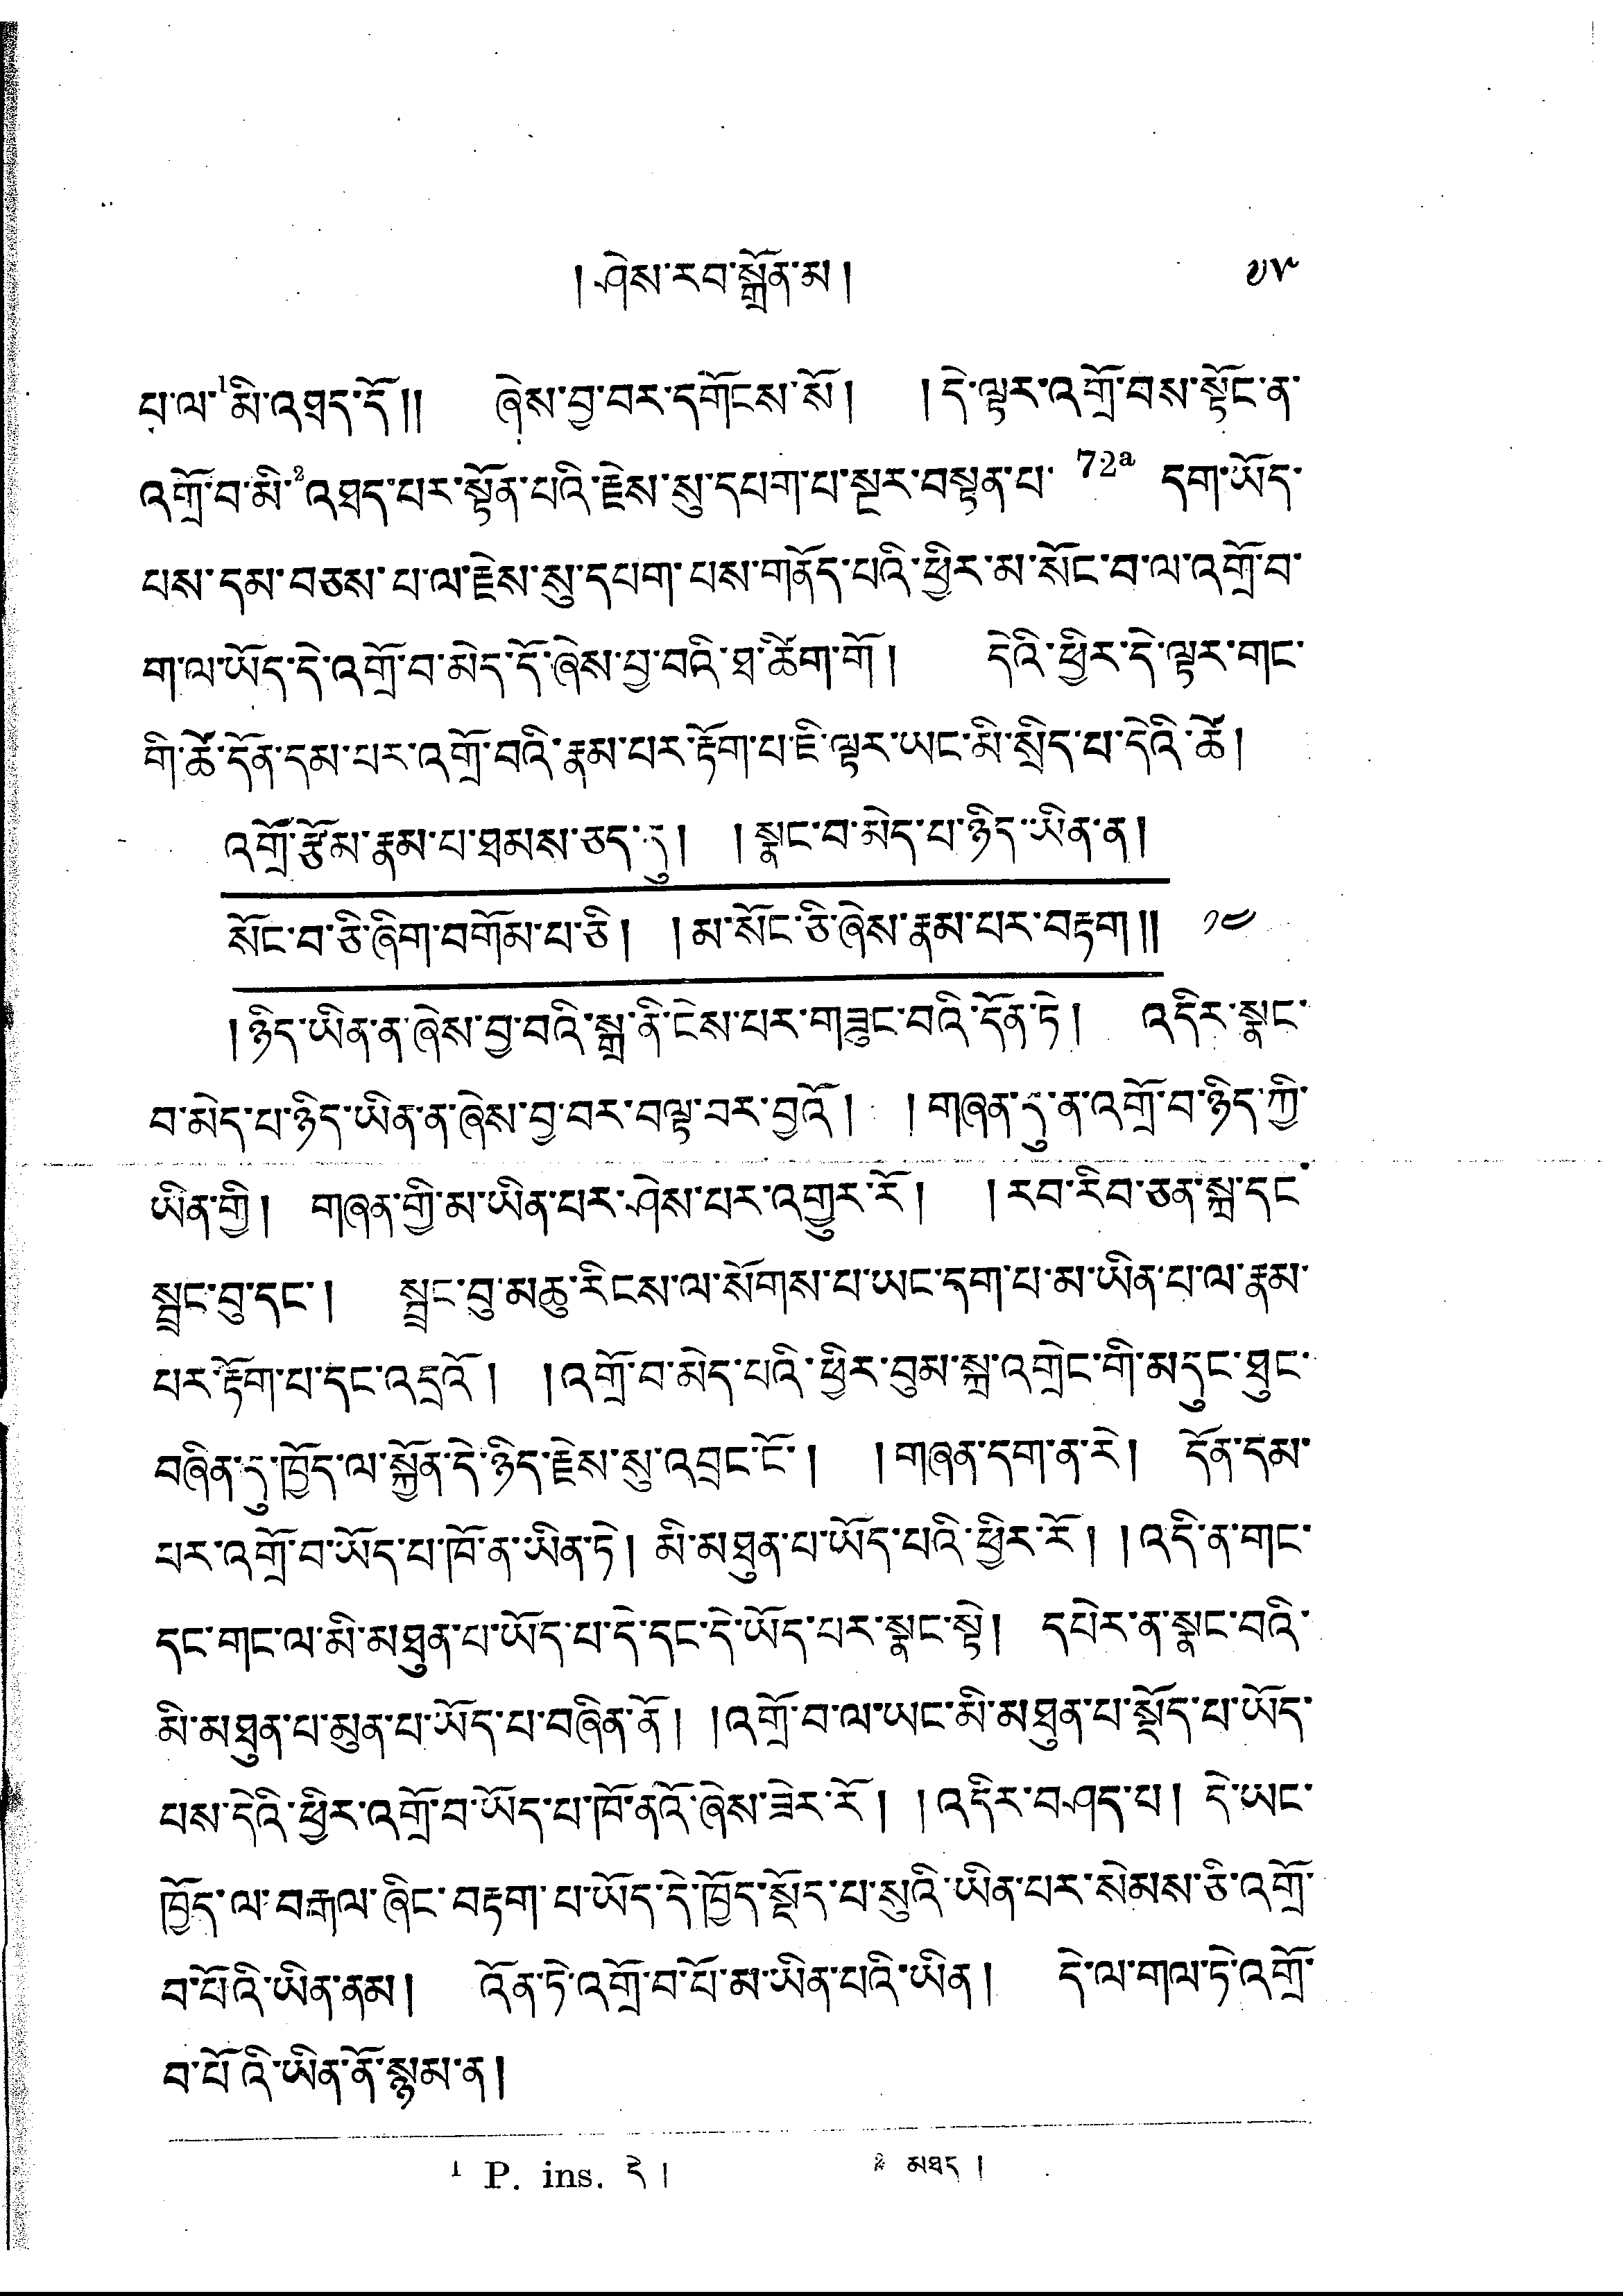 ། ཤེས་རབ་སྒྲོན་མ །
པ་ལ་¹མི་འཐད་དོ།། ཞེས་བྱ་བར་དགོངས་སོ། །དེ་ལྟར་འགྲོ་བས་སྟོང་ན་
འགྲོ་བ་མི་²འཐད་པར་སྟོན་པའི་རྗེས་སུ་དཔག་པ་སྔར་བསྟན་པ་ 72a དག་ཡོད་
པས་དམ་བཅས་པ་ལ་རྗེས་སུ་དཔག་པས་གནོད་པའི་ཕྱིར་མ་སོང་བ་ལ་འགྲོ་བ་
ག་ལ་ཡོད་དེ་འགྲོ་བ་མེད་དོ་ཞེས་བྱ་བའི་ཐ་ཚིག་གོ། དེའི་ཕྱིར་དེ་ལྟར་གང་
གི་ཚེ་དོན་དམ་པར་འགྲོ་བའི་རྣམ་པར་རྟོག་པ་ཇི་ལྟར་ཡང་མི་སྲིད་པ་དེའི་ཚེ།
འགྲོ་རྩོམ་རྣམ་པ་ཐམས་ཅད་དུ། །སྣང་བ་མེད་པ་ཉིད་ཡིན་ན།
སོང་བ་ཅི་ཞིག་བགོམ་པ་ཅི། །མ་སོང་ཅི་ཞེས་རྣམ་པར་བརྟག།། ༡༤
།ཉིད་ཡིན་ན་ཞེས་བྱ་བའི་སྒྲ་ནི་ངེས་པར་གཟུང་བའི་དོན་ཏེ། འདིར་སྣང་
བ་མེད་པ་ཉིད་ཡིན་ན་ཞེས་བྱ་བར་བལྟ་བར་བྱའོ། །གཞན་དུ་ན་འགྲོ་བ་ཉིད་ཀྱི་
ཡིན་གྱི། གཞན་གྱི་མ་ཡིན་པར་ཤེས་པར་འགྱུར་རོ། །རབ་རིབ་ཅན་སྐྲ་དང་
སྦྲང་བུ་དང་། སྦྲང་བུ་མཆུ་རིངས་ལ་སོགས་པ་ཡང་དག་པ་མ་ཡིན་པ་ལ་རྣམ་
པར་རྟོག་པ་དང་འདྲའོ། །འགྲོ་བ་མེད་པའི་ཕྱིར་བུམ་སྐྲ་འགྲེང་གི་མདུང་ཐུང་
བཞིན་དུ་ཁྱོད་ལ་སྐྱོན་དེ་ཉིད་རྗེས་སུ་འབྲང་ངོ་། །གཞན་དག་ན་རེ། དོན་དམ་
པར་འགྲོ་བ་ཡོད་པ་ཁོ་ན་ཡིན་ཏེ། མི་མཐུན་པ་ཡོད་པའི་ཕྱིར་རོ། །འདི་ན་གང་
དང་གང་ལ་མི་མཐུན་པ་ཡོད་པ་དེ་དང་དེ་ཡོད་པར་སྣང་སྟེ། དཔེར་ན་སྣང་བའི་
མི་མཐུན་པ་མུན་པ་ཡོད་པ་བཞིན་ནོ། །འགྲོ་བ་ལ་ཡང་མི་མཐུན་པ་སྡོད་པ་ཡོད་
པས་དེའི་ཕྱིར་འགྲོ་བ་ཡོད་པ་ཁོ་ནའོ་ཞེས་ཟེར་རོ། །འདིར་བཤད་པ། དེ་ཡང་
ཁྱོད་ལ་བརྒལ་ཞིང་བརྟག་པ་ཡོད་དེ་ཁྱོད་སྡོད་པ་སུའི་ཡིན་པར་སེམས་ཅི་འགྲོ་
བ་པོའི་ཡིན་ནམ། འོན་ཏེ་འགྲོ་བ་པོ་མ་ཡིན་པའི་ཡིན། དེ་ལ་གལ་ཏེ་འགྲོ་
བ་པོའི་ཡིན་ནོ་སྙམ་ན།
¹ P. ins. དེ། ² མཐད །